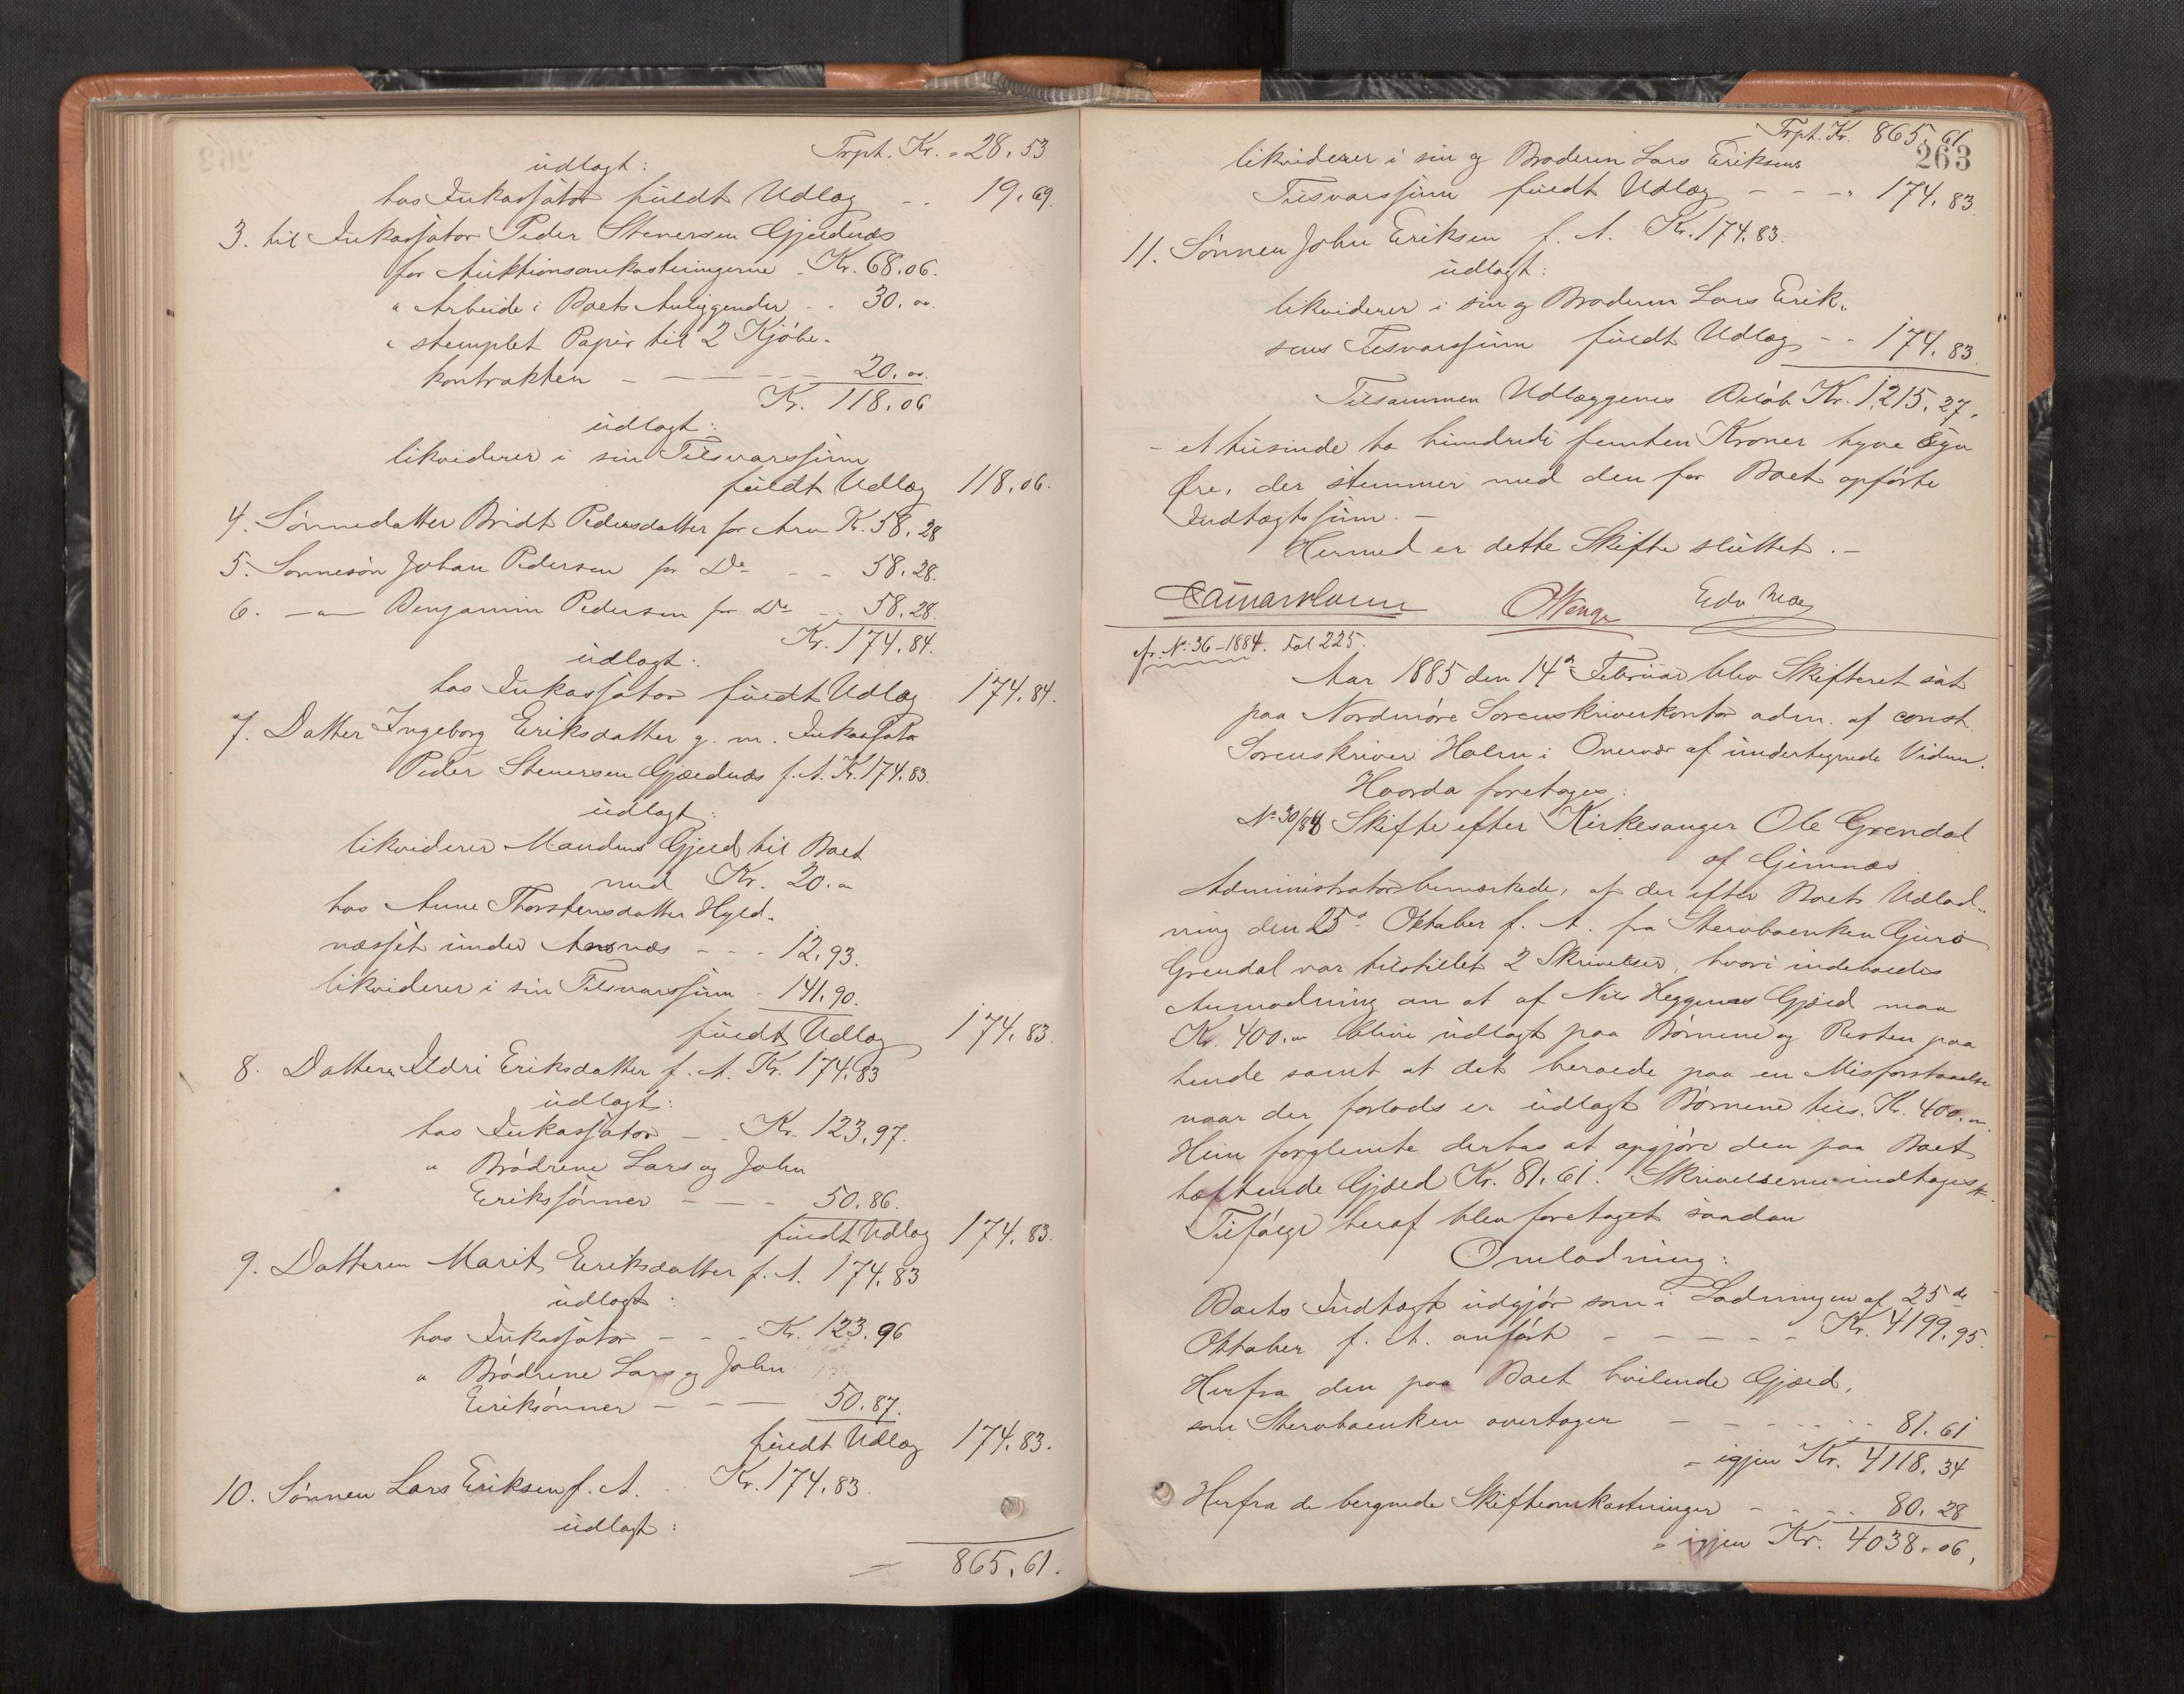 Trpt. Kr. 28.53
udlagt:
hos Inkassator fuldt Udlæg - - 19.69.
3. til Inkassator Peder Stenersen Gjeldnæs
for Auktionsomkostningerne - Kr. 68.06.
" Arbeide i Boets Anliggender - - 30.00.
" stemplet Papir til 2 Kjøbe-
kontrakter - - - - 20.00.
Kr. 118.06
udlagt:
likviderer i sin Tilsvarssum
fuldt Udlæg 118.06.
4. Sønnedatter Bridt Pedersdatter for Arv Kr. 58.28
5. Sønnesøn Johan Pedersen for Do - - 58.28.
6. —"— Benjamin Pedersen for Do - - 58.28.
Kr. 174.84.
udlagt:
hos Inkassator fuldt Udlæg 174.84.
7. Datter Ingeborg Eriksdatter g. m. Inkassator
Peder Stenersen Gjældnæs f. A. Kr. 174.83.
udlagt:
likviderer Mandens Gjeld til Boet
med Kr. 20.00
hos Anne Thorstensdatter Hyld-
næsset under Arnæs - - - 12.93.
likviderer i sin Tilsvarssum - 141.90.
fuldt Udlæg 174.83.
8. Datteren Ildri Eriksdatter f. A. Kr. 174.83
udlagt:
hos Inkassator - - Kr. 123.97.
" Brødrene Lars og John
Erikssønner - - - 50.86.
fuldt Udlæg 174.83.
9. Datteren Marit Eriksdatter f. A. 174.83
udlagt:
hos Inkassator - - - Kr. 123.96
" Brødrene Lars og John
Eriksønner - - - 50.87.
fuldt Udlæg 174.83.
10. Sønnen Lars Eriksen f. A. - Kr. 174.83.
udlagt:
= 865.61.
Trpt. Kr. 865.61
263
likviderer i sin og Broderen Lars Eriksens
Tilsvarssum fuldt Udlæg - - - 174.83.
11. Sønnen John Eriksen f. A. Kr. 174.83.
udlagt:
likviderer i sin og Broderen Lars Erik-
sens Tilsvarssum fuldt Udlæg - - 174.83.
Tilsammen Udlæggenes Beløb Kr. 1215.27.
- et tusinde to hundrede femten Kroner tyve syv
Øre, der stemmer med den for Boet opførte
Indtægtssum. -
Hermed er dette Skifte sluttet. -
Edv Moe
fr. No. 36 - 1884. Fol 225.
Aar 1885 den 14de Februar blev Skifteret sat
paa Nordmøre Sorenskriverkontor adm. af const.
Sorenskriver Holm i Overvær af undertegnede Vidner.
Hvorda foretoges:
No 30/84 Skifte efter Kirkesanger Ole Grendal
af Gimnæs
Administrator bemærkede, at der efter Boets Udlod-
ning den 25de Oktober f. A. fra Stervboenken Guro
Grendal var tilstillet 2 Skrivelser, hvori indeholdes
Anmodning om at af Nils Heggenes Gjæld maa
Kr. 400.00 blive udlagt paa Børnene og Resten paa
hende samt at det beroede paa en Misforstaaelse
naar der forlods er udlagt Børnene tils. Kr. 400.00.
Hun forglemte derhos at opgjøre den paa Boet
heftende Gjæld Kr. 81.61. Skrivelserne indtages
Tilfølge heraf blev foretaget saadan
Omlodning:
Boets Indtægt udgjør som i Lodningen af 25de
Oktober f. A. anført - - - - - Kr. 4199.95.
Herfra den paa Boet hvilende Gjæld,
som Stervboenken overtager - - - - - 81.61
- igjen Kr. 4118.34
Herfra de beregnede Skifteomkostninger - - - - 80.28
- igjen Kr. 4038.06,